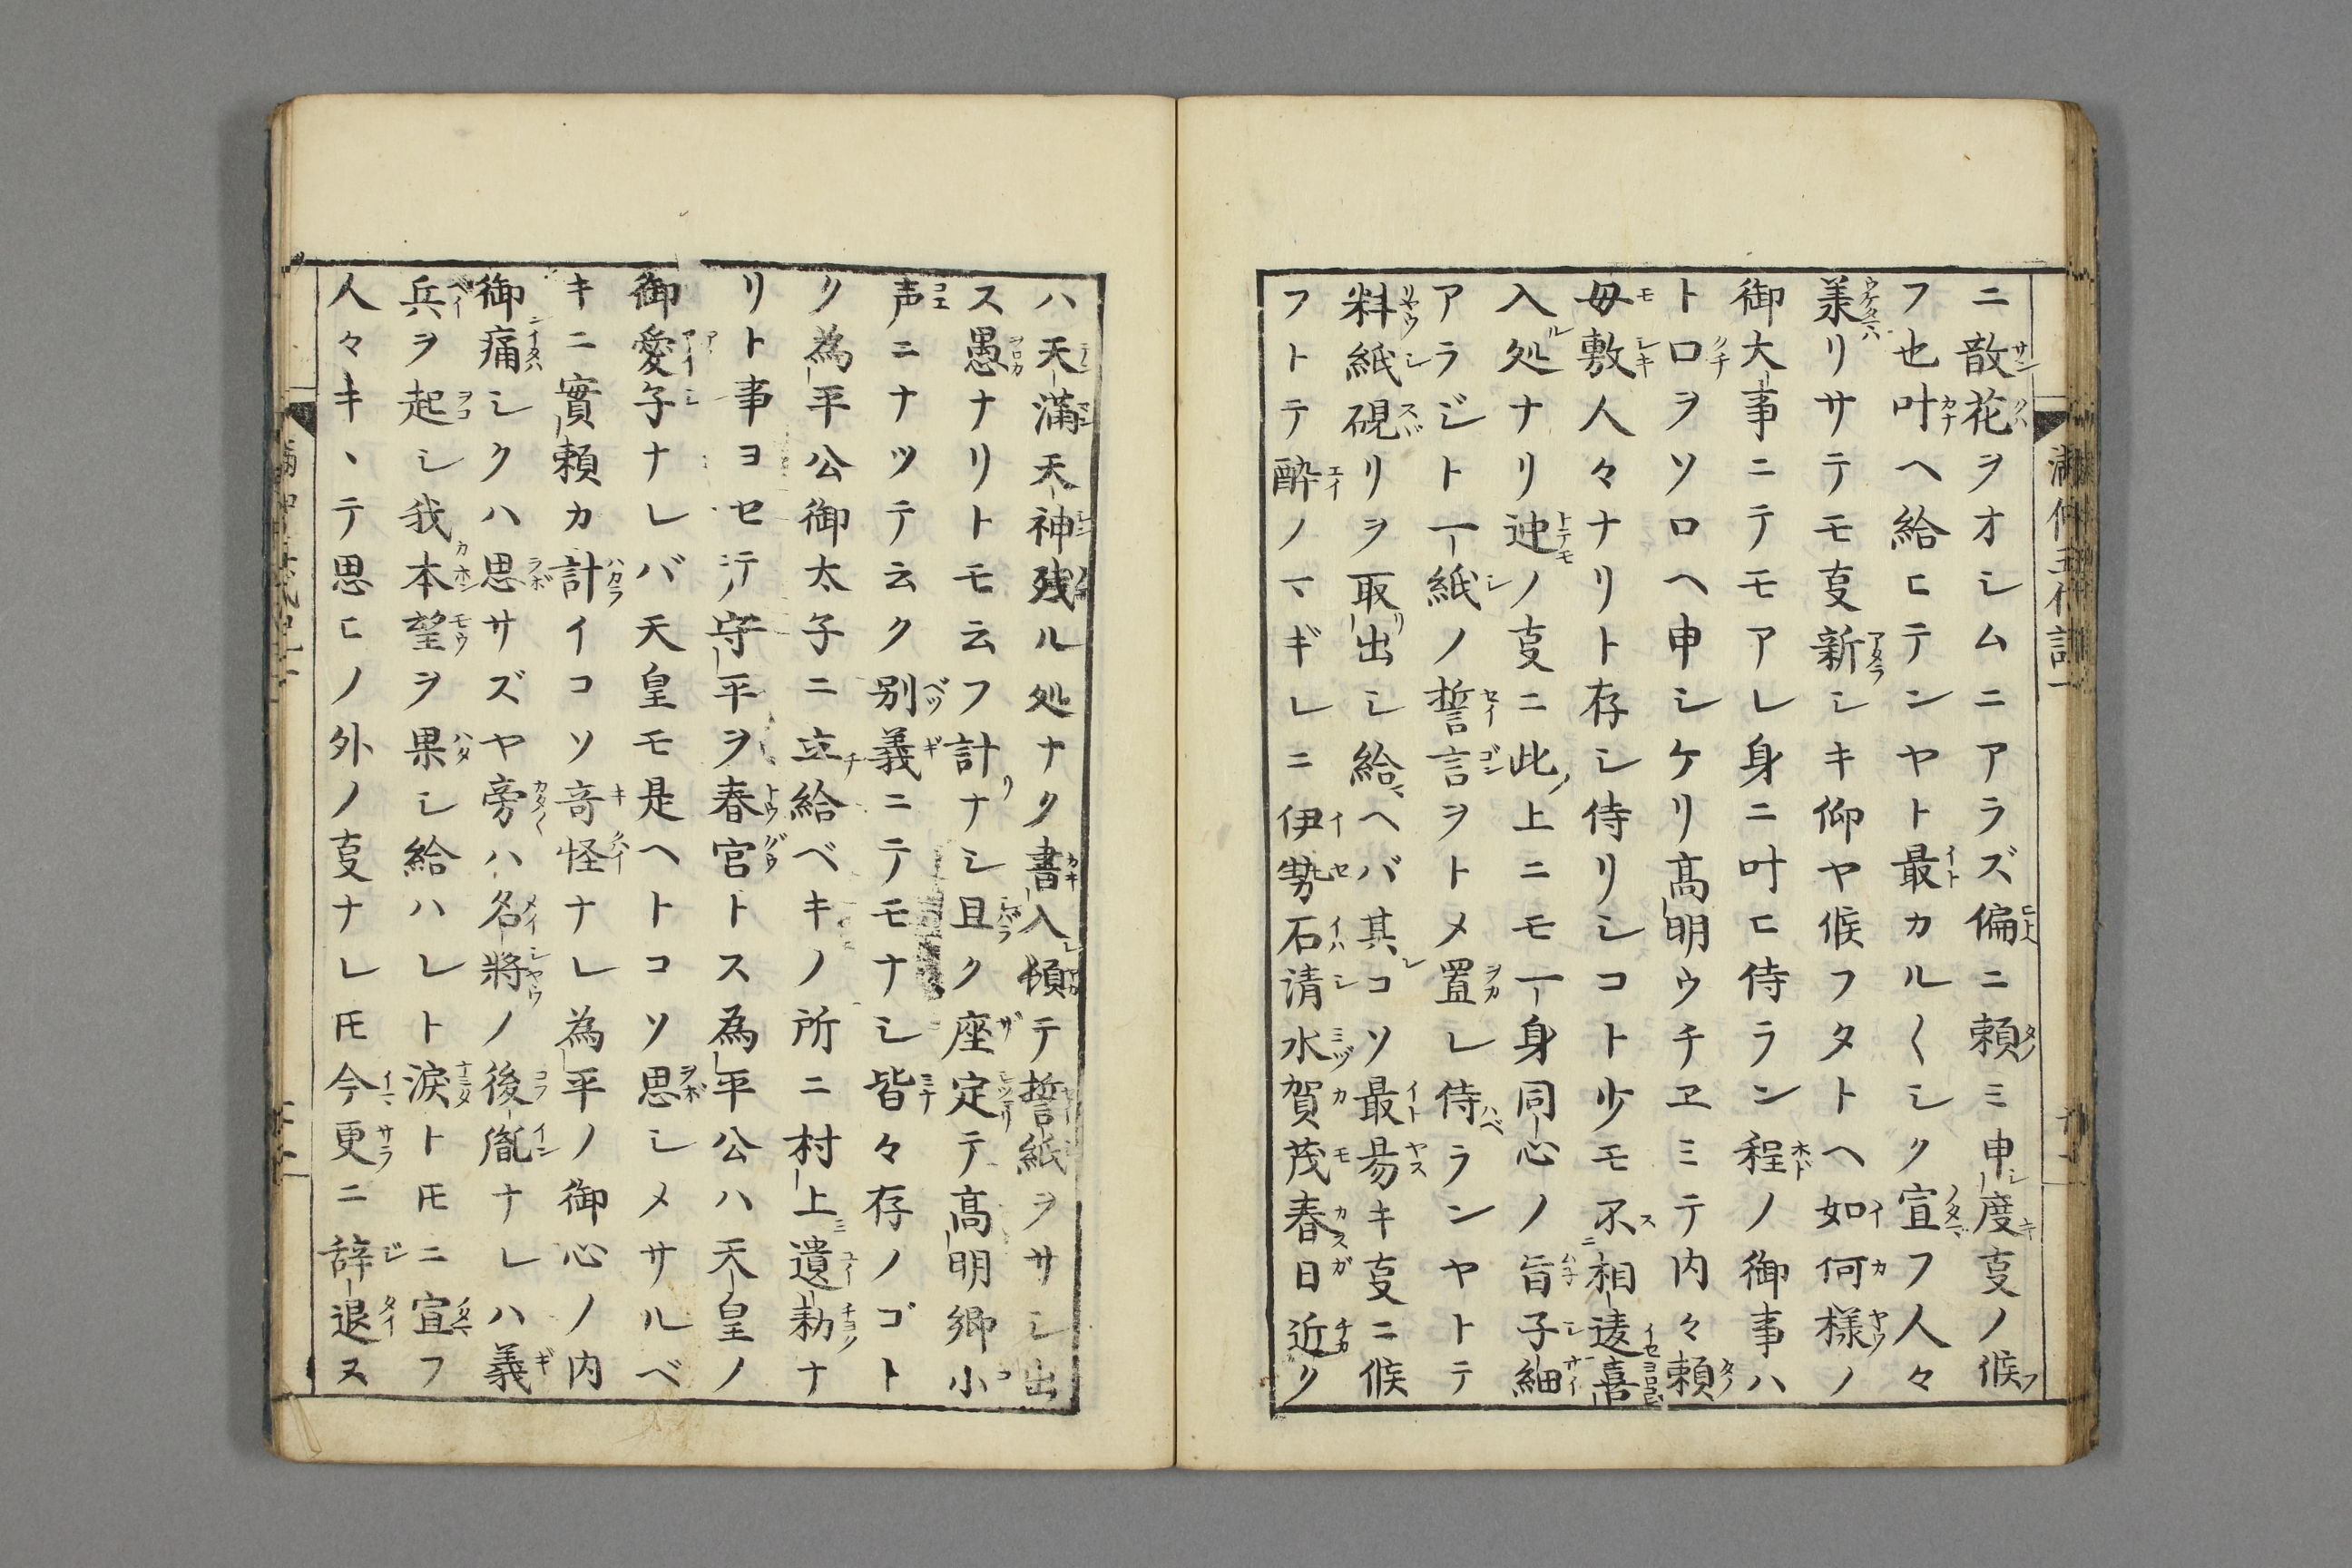 ニ散花ヲオシムニアラズ偏ニ頼ミ申度叓ノ候
フ也叶ヘ給ヒテンヤト最カル〱シク宣フ人々
羕リサテモ叓新シキ仰ヤ候フタトヘ如何様ノ
御大事ニテモアレ身ニ叶ヒ侍ラン程ノ御事ハ
ト口ヲソロヘ申シケリ髙明ウチヱミテ内々頼
毋敷人々ナリト存シ侍リシコト少モ不相違喜
入処ナリ迚ノ叓ニ此上ニモ一身同心ノ旨子細
アラジト一紙ノ誓言ヲトメ置レ侍ランヤトテ
料紙硯リヲ取出シ給ヘバ其コソ最昜キ叓ニ候
フトテ酔ノマギレニ伊勢石清水賀茂春日近ク
ハ天満天神残ル処ナク書入傾テ誓紙ヲサシ出
ス愚ナリトモ云フ計ナシ且ク座定テ髙明卿小
声ニナツテ云ク別義ニテモナシ皆々存ノゴト
ク為平公御太子ニ立給ベキノ所ニ村上遺勅ナ
リト事ヨセテ守平ヲ春宮トス為平公ハ天皇ノ
御愛子ナレバ天皇モ是ヘトコソ思シメサルベ
キニ實頼カ計イコソ竒怪ナレ為平ノ御心ノ内
御痛シクハ思サズヤ旁ハ名將ノ後胤ナレハ義
兵ヲ起シ我本望ヲ果シ給ハレト涙トモニ宣フ
人々キヽテ思ヒノ外ノ叓ナレ𪜈今更ニ辞退ス